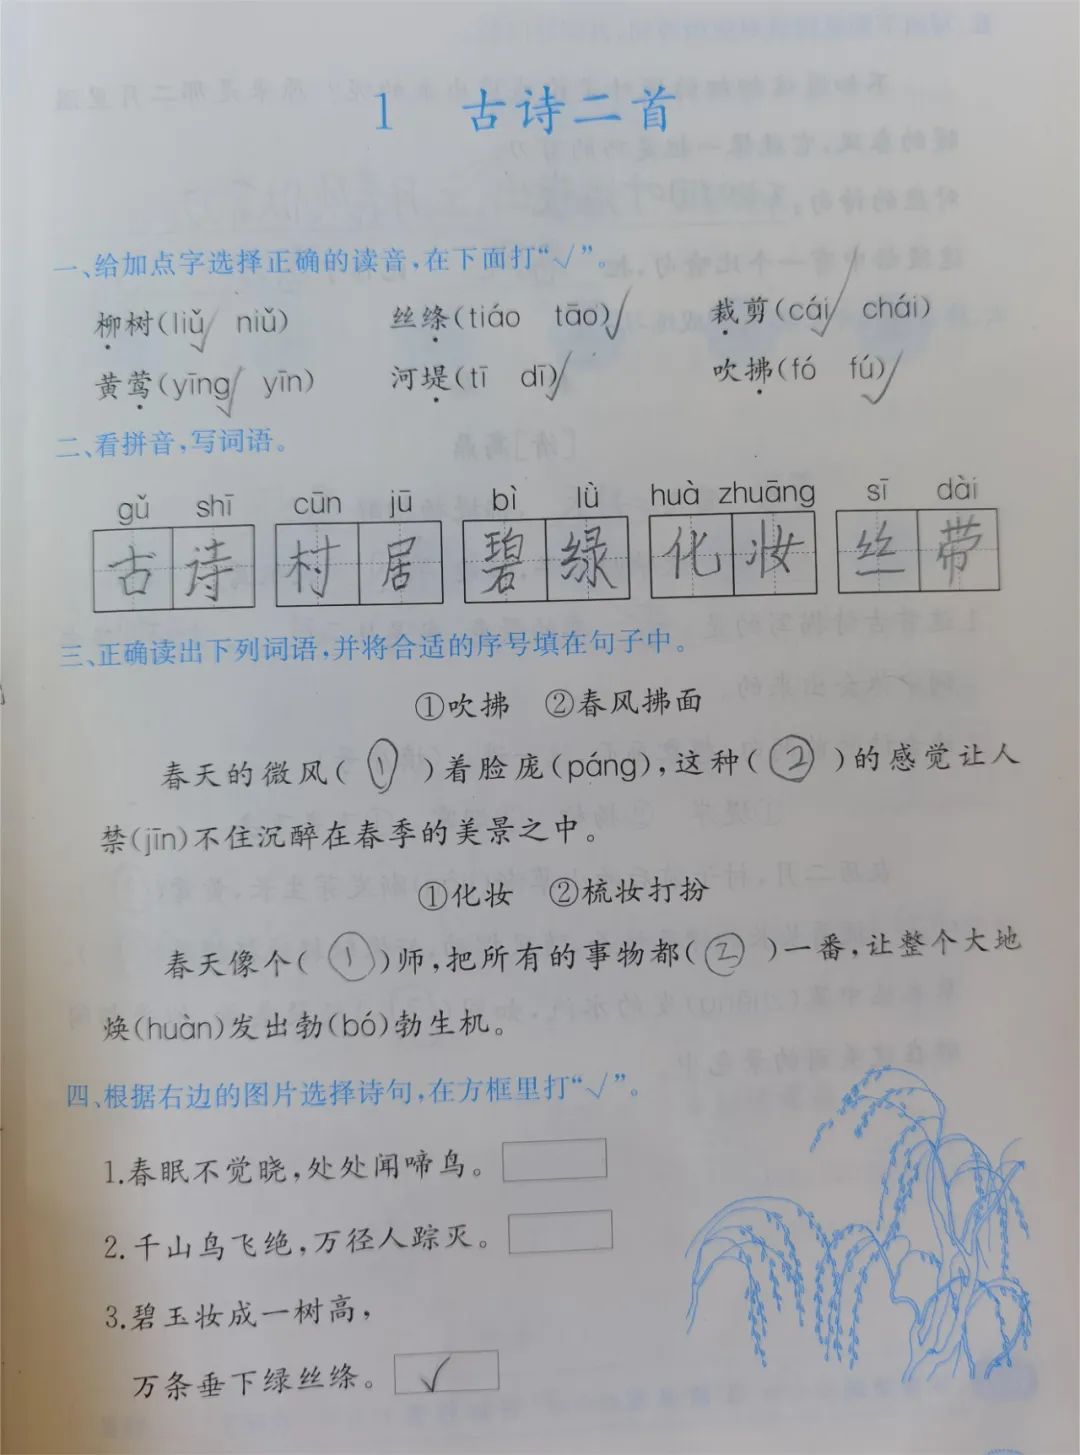 1 古诗二首
一、给加点字选择正确的读音,在下面打“√”。
柳树(liǔ niǔ) 丝绦(tiáo tāo) 裁剪(cái chái)
√ √ √
黄莺(yīng yīn) 河堤(tī dī) 吹拂(fó fú)
√ √ √
二、看拼音,写词语。
gǔ shī cūn jū bì lǜ huà zhuāng sī dài
古诗 村居 碧绿 化妆 丝带
三、正确读出下列词语,并将合适的序号填在句子中。
①吹拂 ②春风拂面
春天的微风( ① )着脸庞(páng),这种( ② )的感觉让人
禁(jīn)不住沉醉在春季的美景之中。
①化妆 ②梳妆打扮
春天像个( ① )师,把所有的事物都( ② )一番,让整个大地
焕(huàn)发出勃(bó)勃生机。
四、根据右边的图片选择诗句,在方框里打“√”。
1.春眠不觉晓,处处闻啼鸟。
2.千山鸟飞绝,万径人踪灭。
3.碧玉妆成一树高,
万条垂下绿丝绦。 √